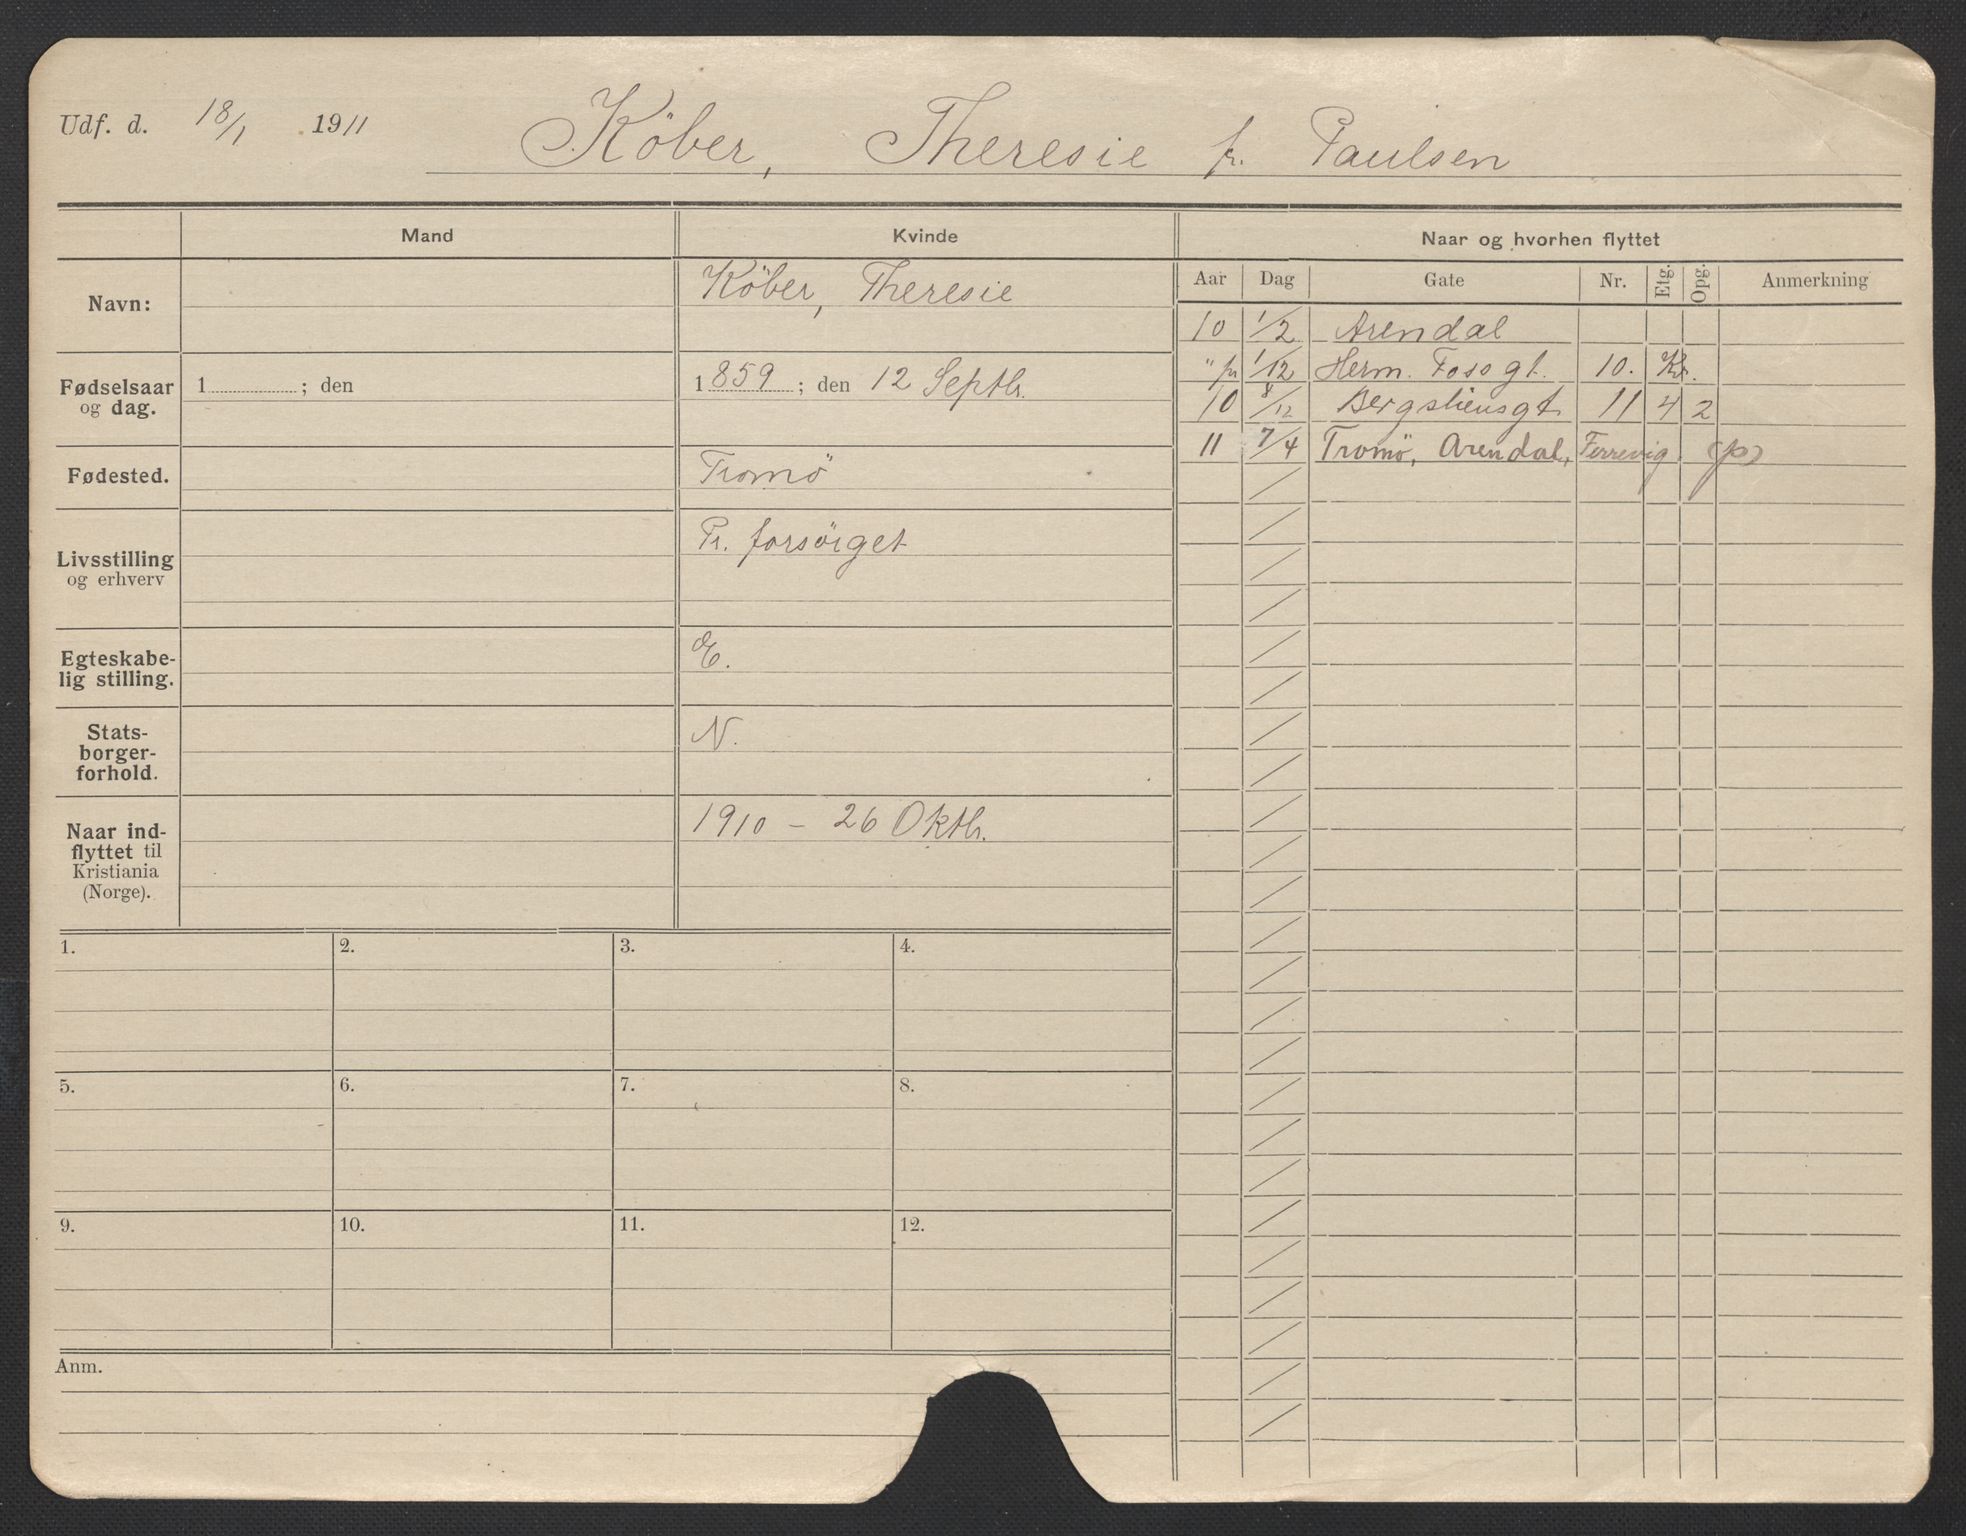 Udf. d. 18/1 1911
Køber, Theresie f. Paulsen
Mand
Kvinde
Naar og hvorhen flyttet
Aar Dag Gate Nr. Etg. Opg. Anmerkning
Navn:
Køber, Theresie
Fødselsaar
og dag.
1 ; den
1859 ; den 12 Septbr.
Fødested.
Tromö
Livsstilling
og erhverv
Pr. forsörget
Egteskabe-
lig stilling.
E.
Stats-
borger-
forhold.
N.
Naar ind-
flyttet til
Kristiania
(Norge).
1910 – 26 Oktbr.
10 1/2 Arendal
" fr 1/12 Herm. Foss gt. 10. Kr.
10 8/12 Bergsliensgt. 11 4 2
11 7/4 Tromö, Arendal, Ferrevig (p)
1.
2.
3.
4.
5.
6.
7.
8.
9.
10.
11.
12.
Anm.